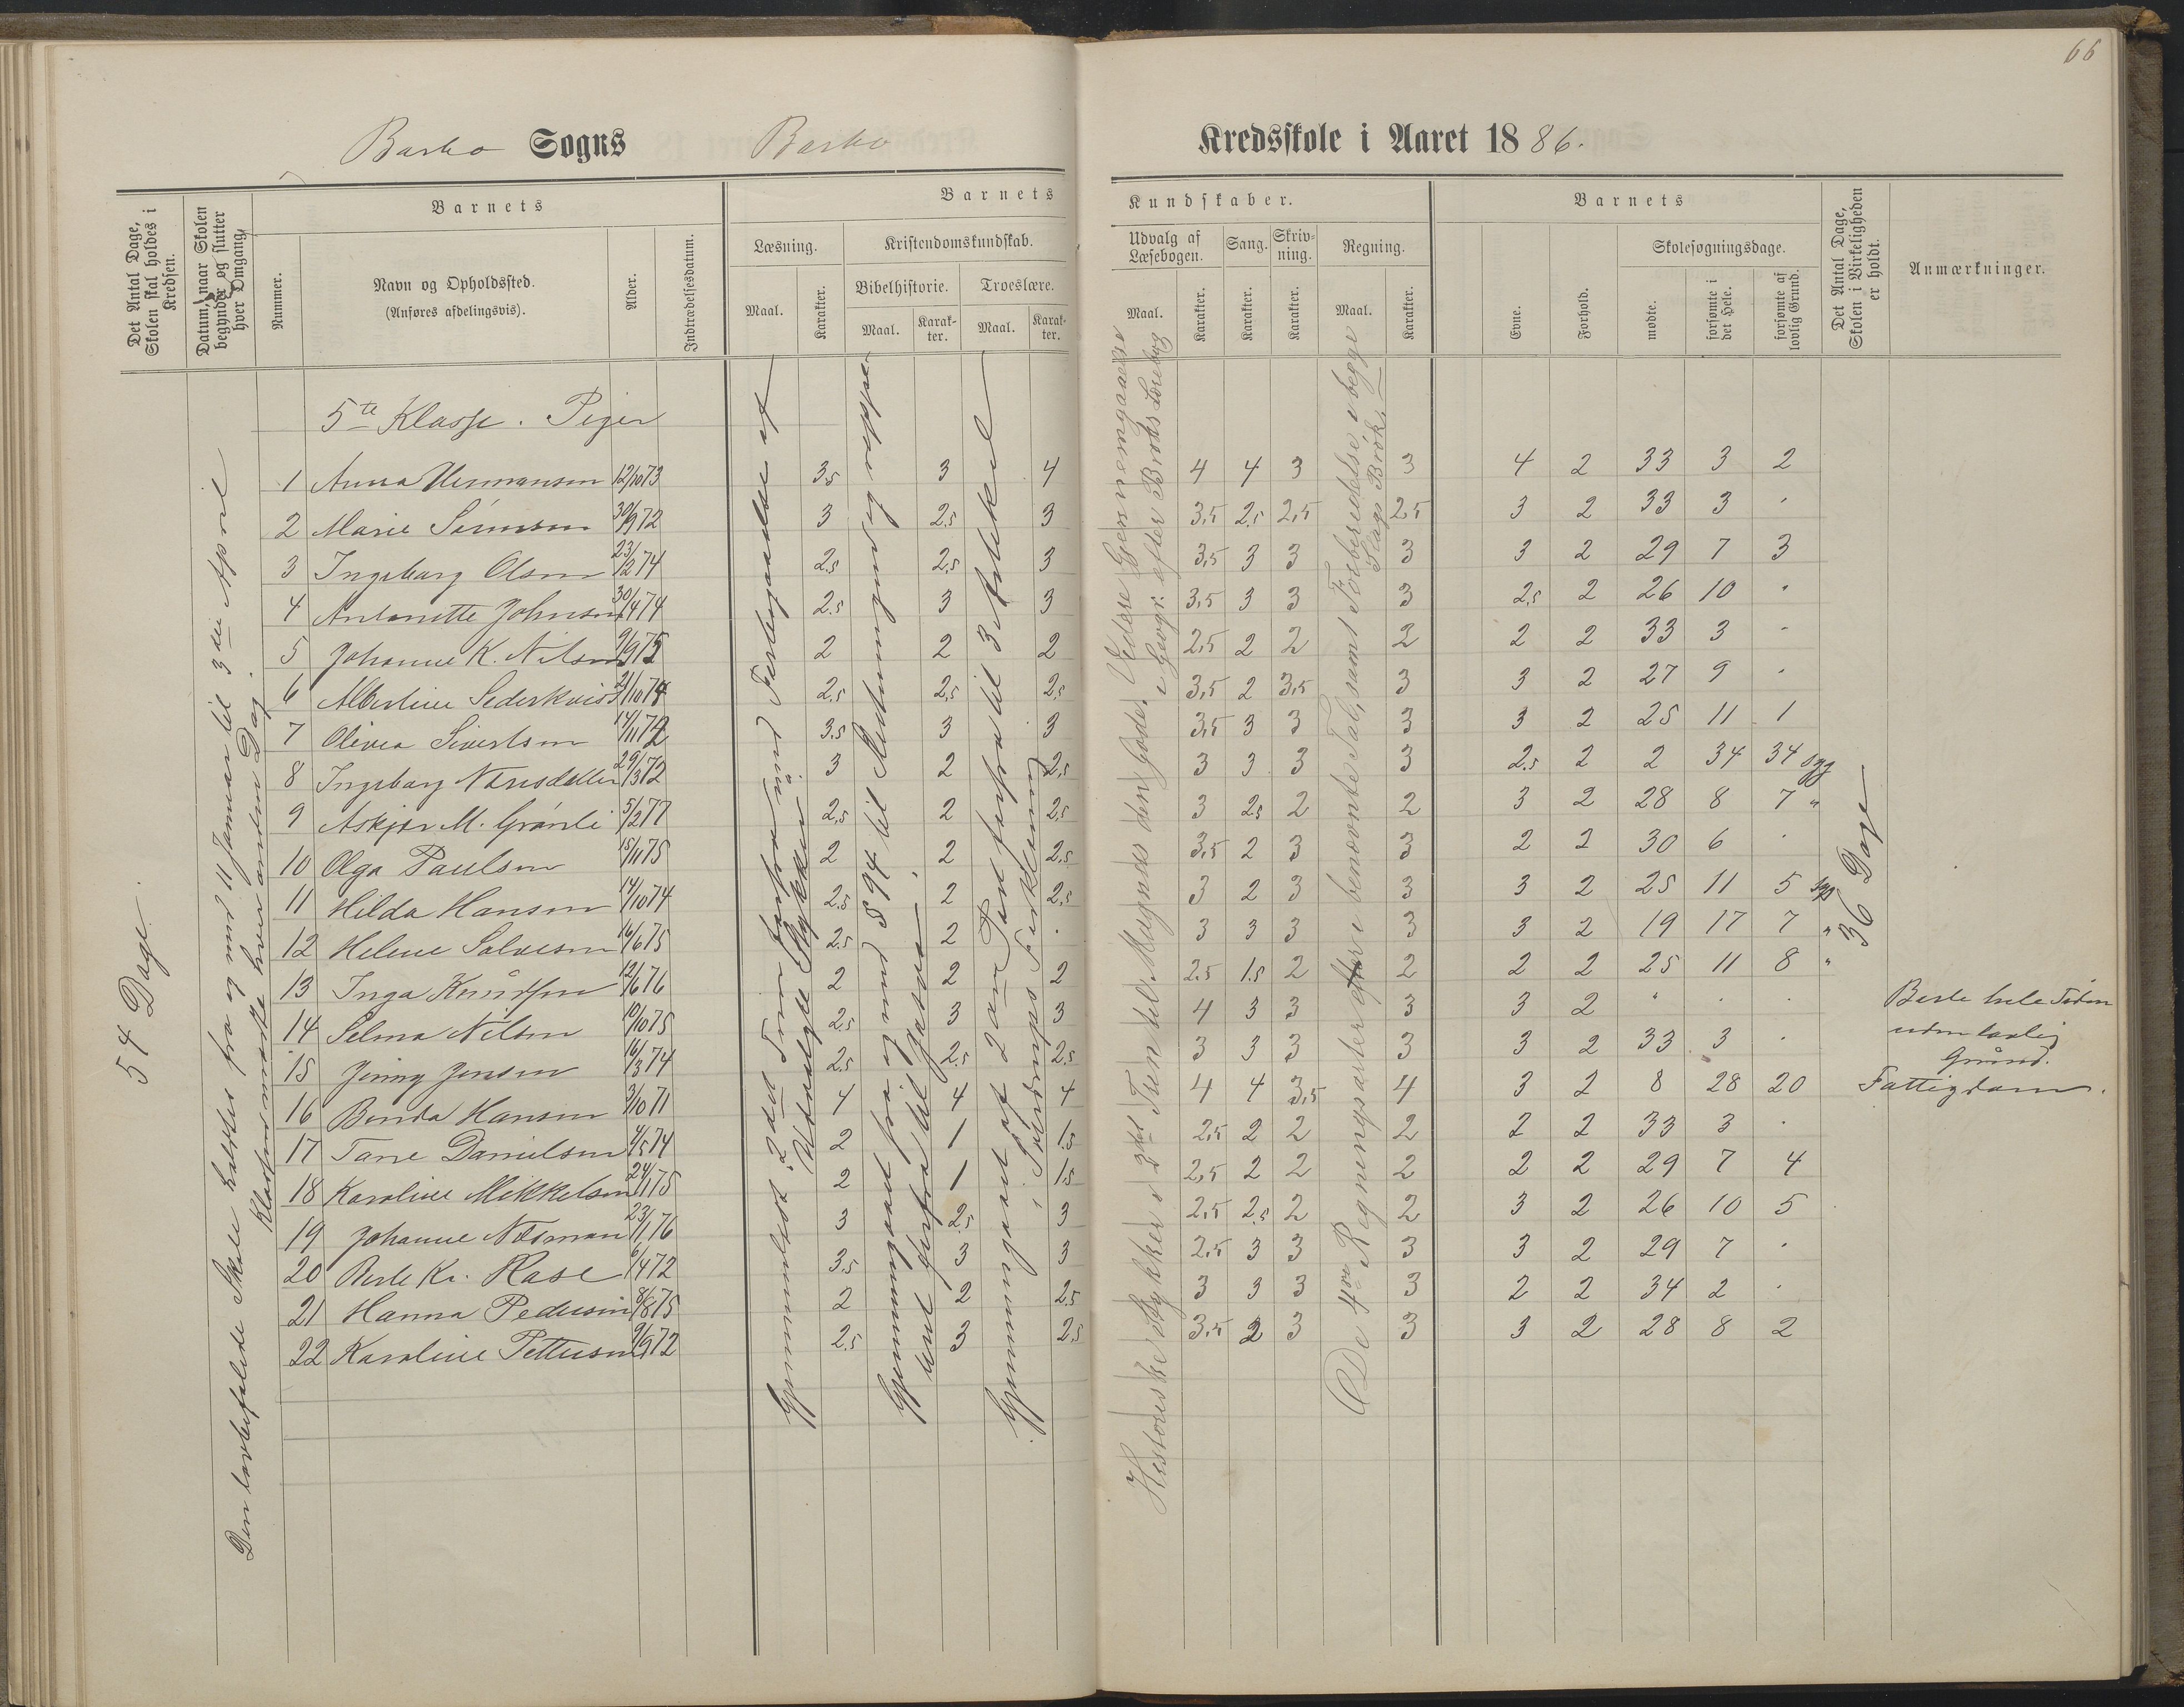 66
Barbo Sogns Barbo Kredsskole i Aaret 1886.
Det Antal Dage, Skolen skal holdes i Kredsen.
Datum, naar Skolen begynder og slutter hver Omgang.
Barnets
Nummer.
Navn og Opholdssted.
(Anføres afdelingsvis).
Alder.
Indtrædelsesdatum.
Barnets Kundskaber.
Læsning.
Maal.
Karakter.
Kristendomskundskab.
Bibelhistorie.
Maal.
Karakter.
Troeslære.
Maal.
Karakter.
Udvalg af Læsebogen.
Maal.
Karakter.
Sang.
Karakter.
Skrivning.
Karakter.
Regning.
Maal.
Karakter.
Barnets
Evne.
Forhold.
Skolesøgningsdage.
mødte.
forsømte i det Hele.
forsømte af lovlig Grund.
Det Antal Dage, Skolen i Virkeligheden er holdt.
Anmærkninger.
54 Dage.
Den lovbefalede Skole holdtes fra og med 11 Januar til 3die April
Klasserne mødte hver anden Dag.
5te Klasse. Piger
1 Anna Hermansen 12/10 73 3,5 3 4 4 4 3 3 4 2 33 3 2
2 Marie Simonsen 30/9 72 3 2,5 3 3,5 2,5 2,5 2,5 3 2 33 3 .
3 Ingeborg Olsen 23/12 74 2,5 2,5 3 3,5 3 3 3 3 2 29 7 3
4 Antonette Johnsen 30/4 74 2,5 3 3 3,5 3 3 3 2,5 2 26 10 .
5 Johanne K. Nilsen 9/9 75 2 2 2 2,5 2 2 2 2 2 33 3 .
6 Albertine Sederkvist 21/10 74 2,5 2,5 2,5 3,5 2 3,5 3 3 2 27 9 .
7 Olivia Sivertsen 14/11 72 3,5 3 3 3,5 3 3 3 3 2 25 11 1
8 Ingeborg Narisdatter 29/3 72 3 2 2,5 3 3 3 3 2,5 2 2 34 34 syg
9 Askjær M. Grønli 5/2 77 2,5 2 2,5 3 2,5 2 2 3 2 28 8 7 "
10 Olga Paulsen 15/11 75 2 2 2,5 3,5 2 3 3 2 2 30 6 .
11 Hilda Hansen 14/10 74 2,5 2 2,5 3 2 3 3 3 2 25 11 5 syg
12 Helene Salvesen 16/6 75 2,5 2 . 3 3 3 3 3 2 19 17 7 "
13 Inga Knudsen 12/6 76 2 2 2 2,5 1,5 2 2 2 2 25 11 8 "
14 Selma Nilsen 10/10 75 2,5 3 3 4 3 3 3 3 2 " . . Borte hele Tiden uden lovlig Grund.
15 Jenny Jensen 16/3 74 2,5 2,5 2,5 3 3 3 3 3 2 33 3 .
16 Benda Hansen 3/10 71 4 4 4 4 4 3,5 4 3 2 8 28 20 Fattigdom.
17 Tane Danielsen 4/5 74 2 1 1,5 2,5 2 2 2 2 2 33 3 .
18 Karoline Mikkelsen 24/11 75 2 1 1,5 2,5 2 2 2 2 2 29 7 4
19 Johanne Nilsen 23/1 76 3 2,5 3 2,5 2,5 2 2 3 2 26 10 5
20 Berte Kr. Rase 6/4 72 3,5 3 3 2,5 3 3 3 3 2 29 7 .
21 Hanna Pedersen 8/8 75 2 2 2,5 3 3 3 3 2 2 34 2 .
22 Karoline Pettersen 9/9 72 2,5 3 2,5 3,5 2 3 3 3 2 28 8 2
Gjennemlæst 2det Trin forfra med Forbigaaelse af
Udvalgte Stykker
Gjennemgaaet fra og med § 94 til Slutningen og opp
ent forfra til Josva.
Gjennemgaaet af 2den Part forfra til 3die Artikel
i Sverdrups Forklaring
Historiske Stykker i 3die Trin til Magnus den Gode. Videre Gjennemgaaelse
i Geogr. efter Broks Lærebog
De 4re Regningsarter i benævnte Tal, samt Forberedelse i begge
Slags Brøk.
36 Dage